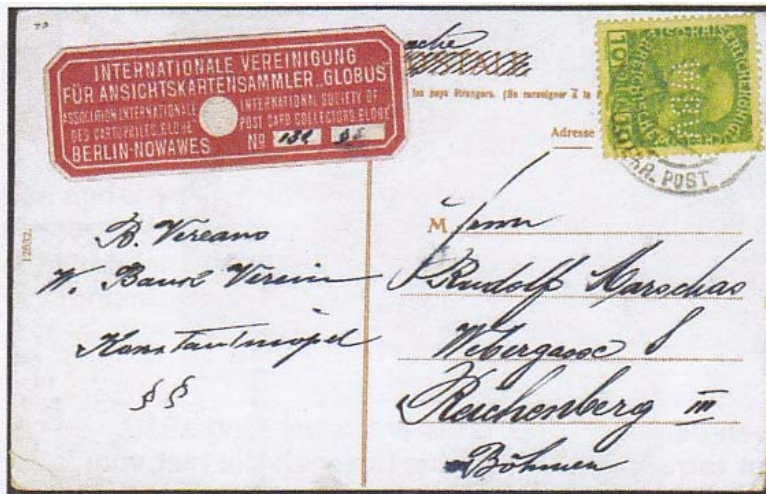 INTERNATIONALE VEREINIGUNG
FÜR ANSICHTSKARTENSAMMLER „GLOBUS"
ASSOCIATION INTERNATIONALE
DES CARTOPHILES „GLOBE"
INTERNATIONAL SOCIETY OF
POST CARD COLLECTORS „GLOBE"
BERLIN-NOWAWES
No
les pays étrangers. (Se renseigner à la
Adresse
12632.
B. Vereano
W. Bank Verein
Konstantinopel
§§
10
ÖSTERR. POST
M Herrn
Rudolf Marschas
Webergasse 8
Reichenberg III
Böhmen